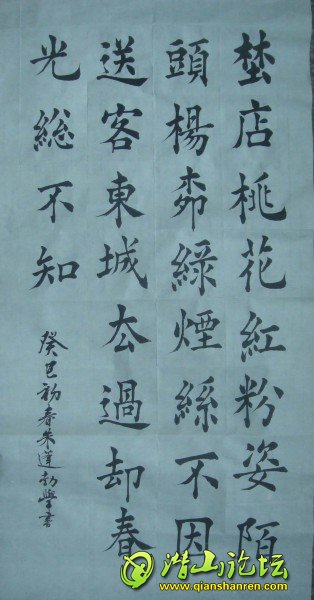 埜店桃花紅粉姿陌
頭楊柳綠煙絲不因
送客東城厺過却春
光総不知
癸巳初春朱學書
潜山论坛
www.qianshanren.com